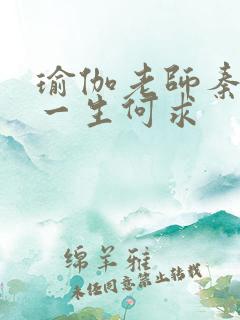 瑜伽老師秦
一生何求
绵羊雅
未经同意禁止转载